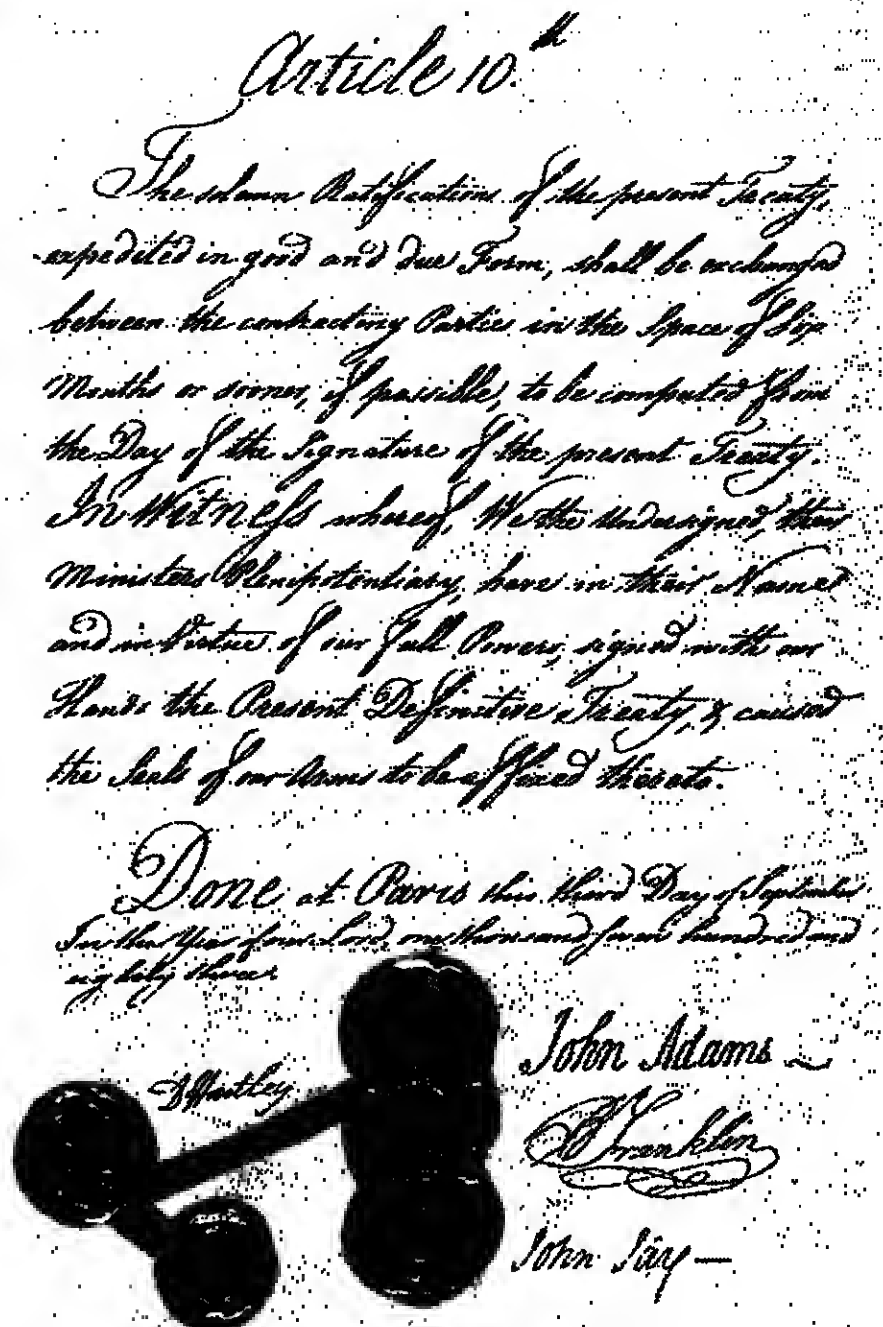 Article 10.th
The solemn Ratifications of the present Treaty,
expedited in good and due Form, shall be exchanged
between the contracting Parties in the Space of Six
Months or sooner, if possible, to be computed from
the Day of the Signature of the present Treaty.
In Witness whereof, We the Undersigned, their
Ministers Plenipotentiary, have in their Name
and in Virtue of our Full Powers, signed with our
Hands the Present Definitive Treaty, & caused
the Seals of our Arms to be affixed thereto.
Done at Paris this third Day of September
In the Year of our Lord, one thousand seven hundred and
eighty three
D Hartley
John Adams
B Franklin
John Jay